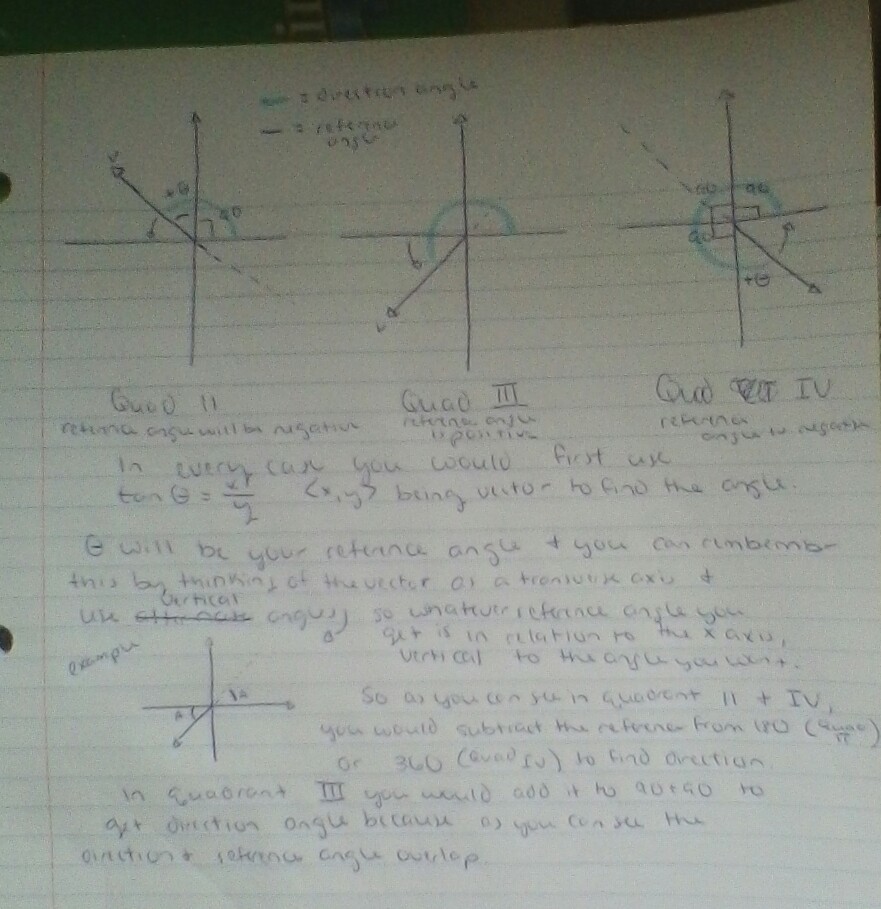 = direction angle
= reference angle
v
+θ
90
v
90
90
90
+θ
Quad II
reference angle will be negative
Quad III
reference angle is positive
Quad IV
reference angle is negative
In every case you would first use
tan θ = x/y <x,y> being vector to find the angle.
θ will be your reference angle + you can
this by thinking of the vector as a transverse axis +
use vertical angles, so whatever reference angle you
get is in relation to the x axis,
vertical to the angle you want.
example
A
A
So as you can see in quadrant II + IV,
you would subtract the reference from 180 (Quad II)
or 360 (Quad IV) to find direction.
In quadrant III you would add it to 90+90 to
get direction angle because as you can see the
direction + reference angle overlap.